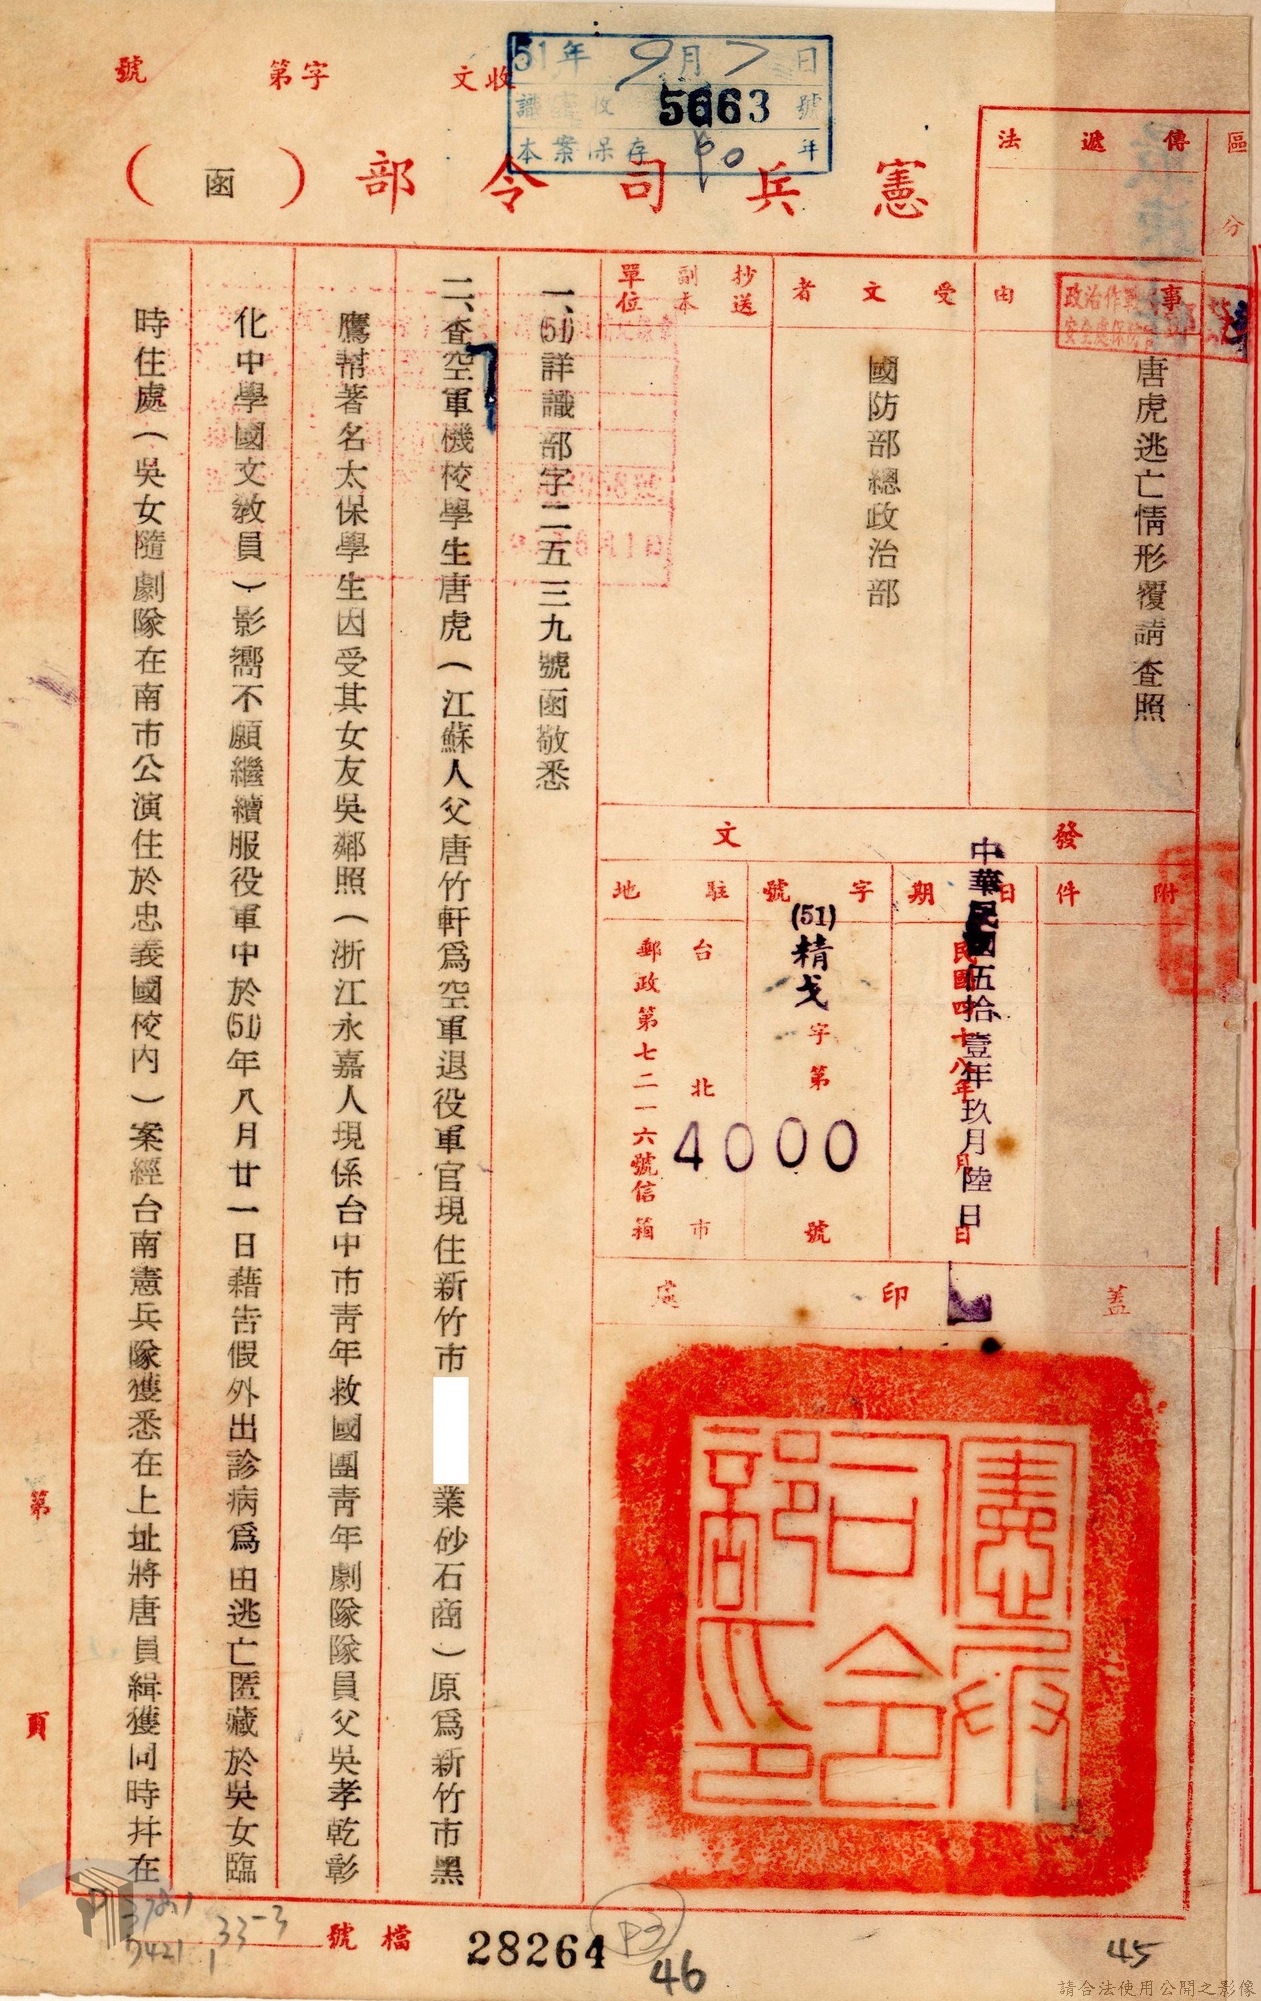 收文
字第
號
51年9月7日
識 收 5663 號
本案保存 年
憲兵司令部（函）
區分
傳遞法
事由
唐虎逃亡情形覆請查照
受文者
國防部總政治部
抄送
副本
單位
發文
附件
日期
中華民國伍拾壹年玖月陸日
民國四十八年 月 日
字號
(51)精戈字第4000號
駐地
台北市
郵政第七二一六號信箱
蓋印處
憲兵司令部印
一、(51)詳識部字二五三九號函敬悉
二、查空軍機校學生唐虎（江蘇人父唐竹軒爲空軍退役軍官現住新竹市 業砂石商）原爲新竹市黑
鷹幫著名太保學生因受其女友吳鄰照（浙江永嘉人現係台中市青年救國團青年劇隊隊員父吳孝乾彰
化中學國文教員）影嚮不願繼續服役軍中於(51)年八月廿一日藉告假外出診病爲由逃亡匿藏於吳女臨
時住處（吳女隨劇隊在南市公演住於忠義國校內）案經台南憲兵隊獲悉在上址將唐員緝獲同時幷在
第 頁
檔號
33-3
28264
46
45
請合法使用公開之影像